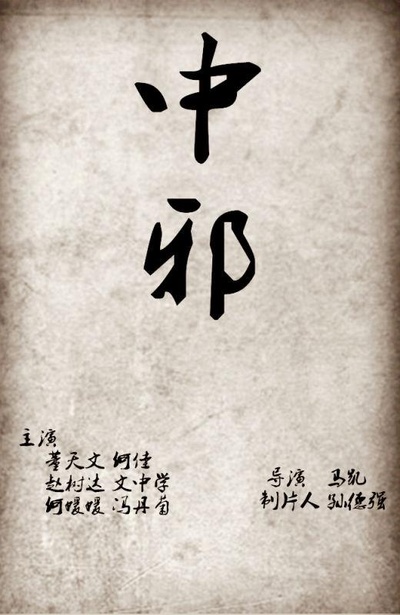 中
邪
主演
董天文 何佳
赵树达 文中学
何媛媛 冯丹菊
导演 马凯
制片人 孙德强